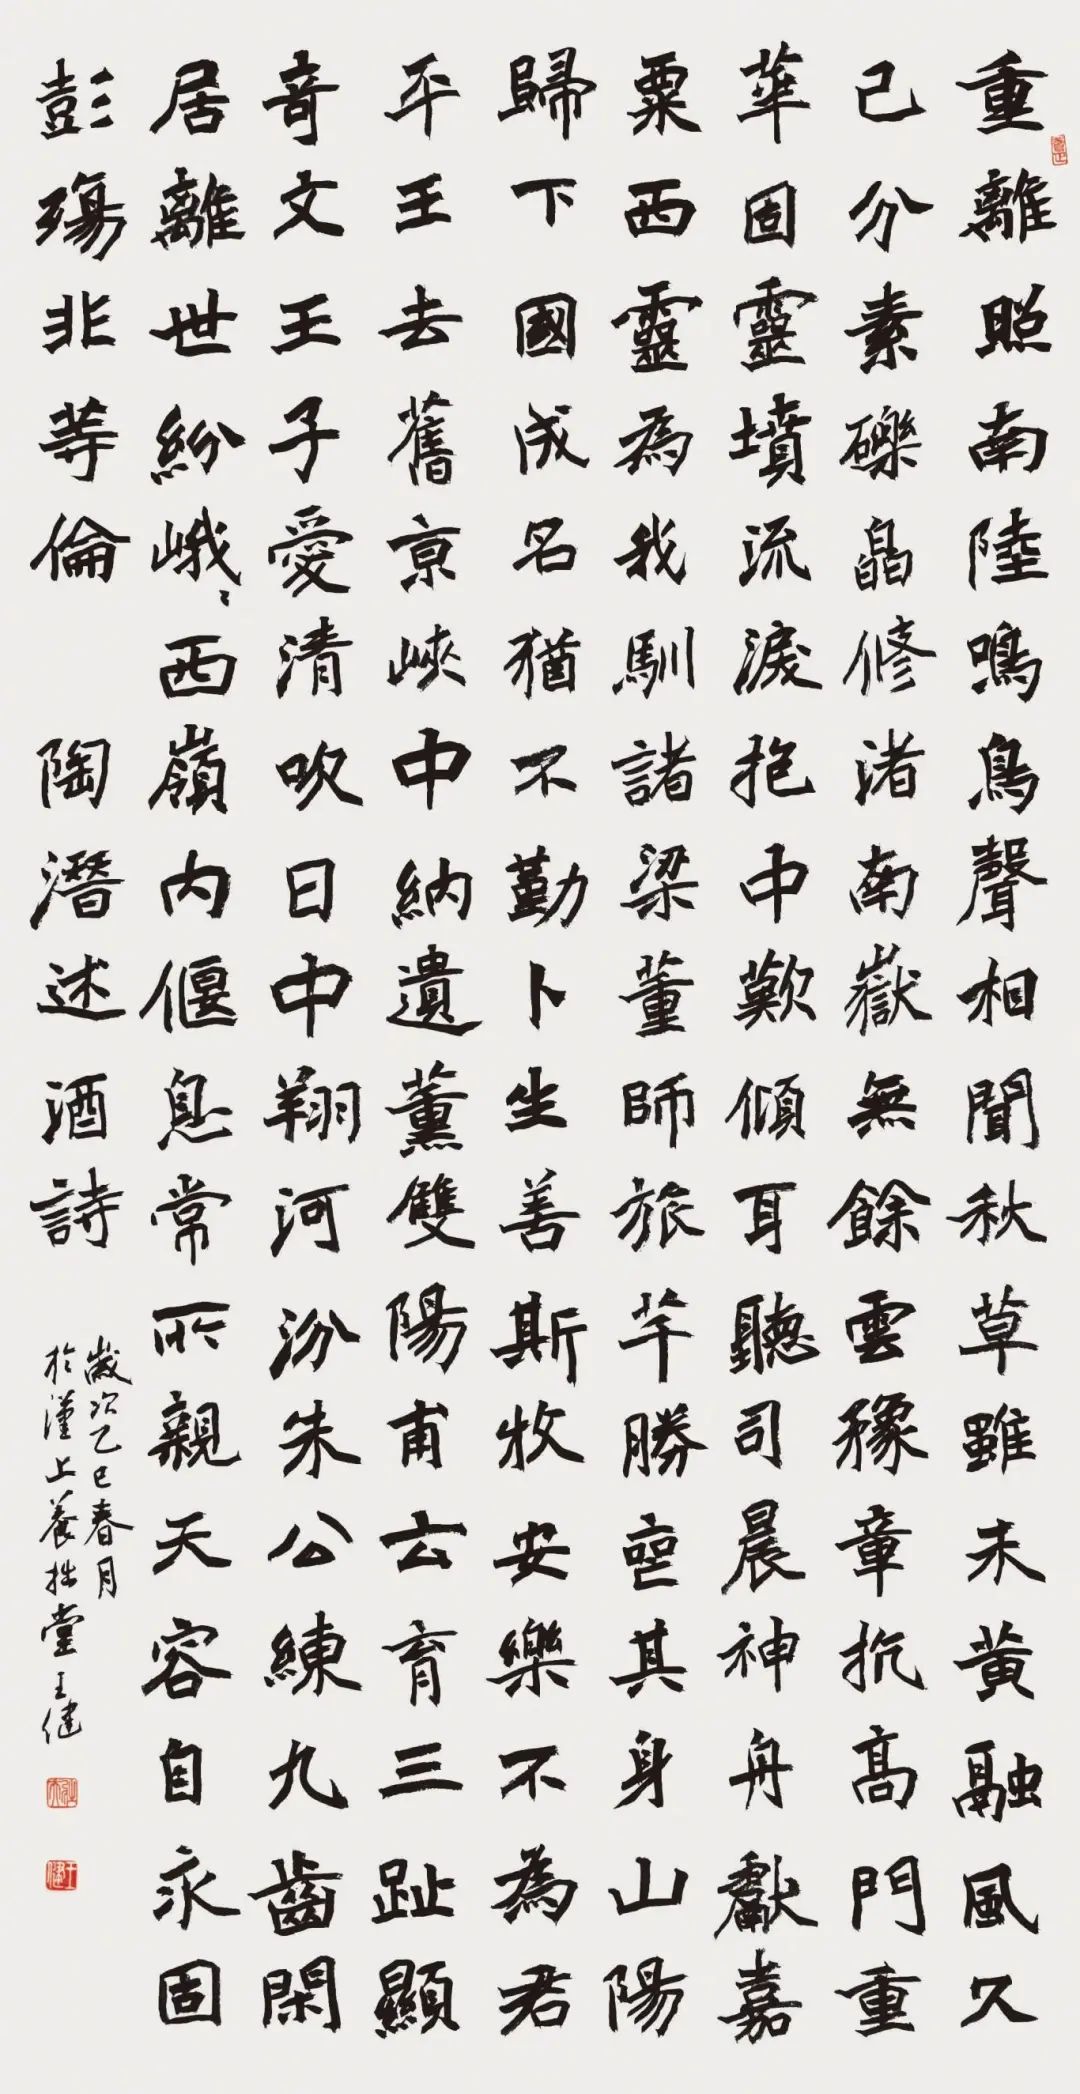 重離照南陸鳴鳥聲相聞秋草雖未黃融風久
已分素礫皛修渚南嶽無餘雲豫章抗高門重
華固靈墳流淚抱中歎傾耳聽司晨神舟獻嘉
粟西靈為我馴諸梁董師旅芊勝喪其身山陽
歸下國成名猶不勤卜生善斯牧安樂不為君
平王去舊京峽中納遺薰雙陽甫云育三趾顯
奇文王子愛清吹日中翔河汾朱公練九齒閑
居離世紛峨〻西嶺內偃息常所親天容自永固
彭殤非等倫 陶潛述酒詩
歲次乙巳春月
於漢上養拙堂王健
王健